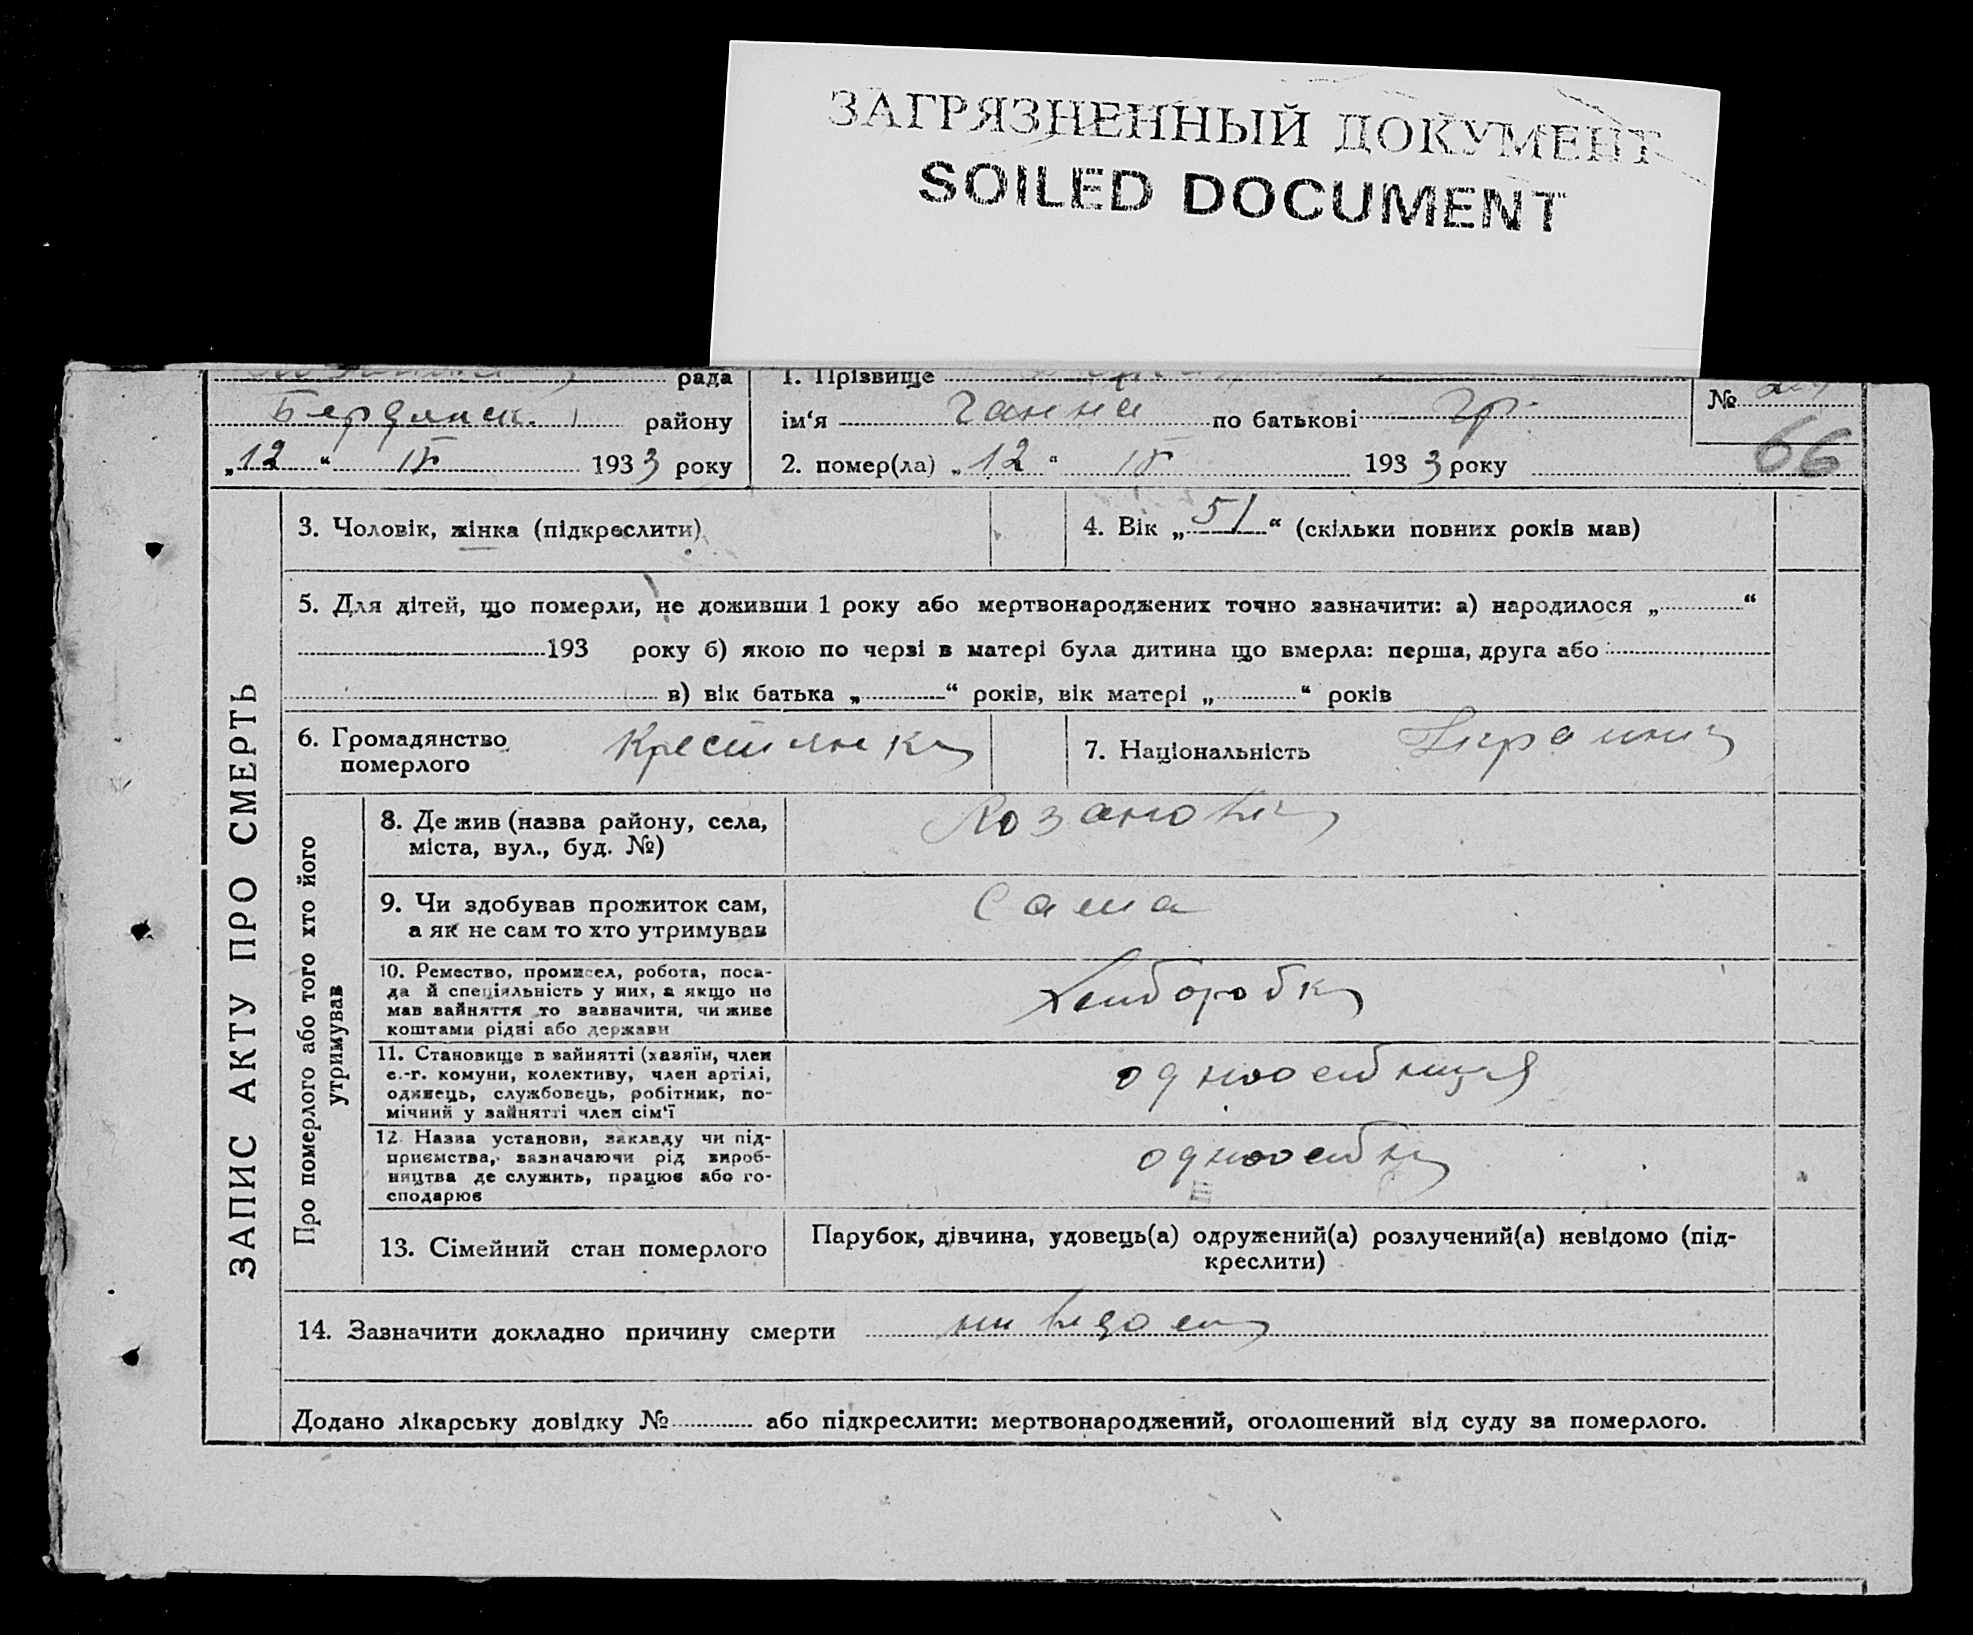 ЗАГРЯЗНЕННЫЙ ДОКУМЕНТ
SOILED DOCUMENT
рада
1. Прізвище
№
Бердянск. району
ім‘я Ганна по батькові Гр.
66
„12“ 193 3 року
2. помер(ла) „12“ 193 3 року
ЗАПИС АКТУ ПРО СМЕРТЬ
3. Чоловік, жінка (підкреслити)
4. Вік „51“ (скільки повних років мав)
5. Для дітей, що померли, не доживши 1 року або мертвонароджених точно зазначити: а) народилося „ “
193 року б) якою по черзі в матері була дитина що вмерла: перша, друга або
в) вік батька „ “ років, вік матері „ “ років
6. Громадянство
померлого
Крестянка
7. Національність
Про померлого або того хто його
утримував
8. Де жив (назва району, села,
міста, вул., буд. №)
9. Чи здобував прожиток сам,
а як не сам то хто утримував
Сама
10. Ремество, промисел, робота, поса-
да й спеціяльність у них, а якщо не
мав зайняття то зазначити, чи живе
коштами рідні або держави
Хліборобка
11. Становище в зайнятті (хазяїн, член
с.-г. комуни, колективу, член артілі,
одинець, службовець, робітник, по-
мічний у зайнятті член сім‘ї
одноосібниця
12. Назва установи, закладу чи під-
приємства, зазначаючи рід вироб-
ництва де служить, працює або го-
сподарює
13. Сімейний стан померлого
Парубок, дівчина, удовець(а) одружений(а) розлучений(а) невідомо (під-
креслити)
14. Зазначити докладно причину смерти
Додано лікарську довідку № або підкреслити: мертвонароджений, оголошений від суду за померлого.